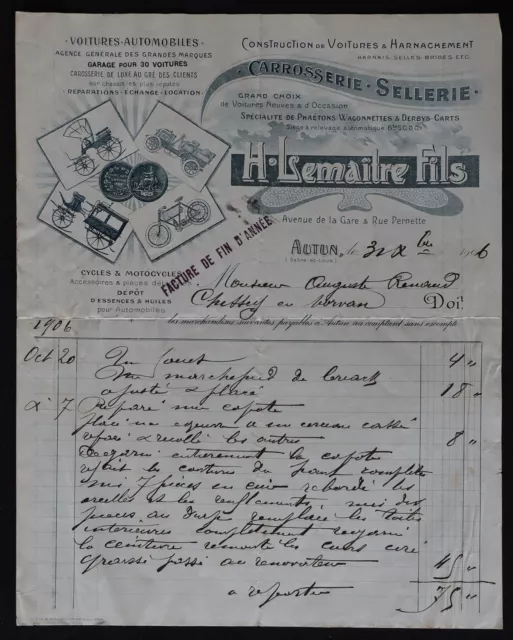 VOITURES-AUTOMOBILES
AGENCE GÉNÉRALE DES GRANDES MARQUES
GARAGE POUR 30 VOITURES
CAROSSERIE DE LUXE AU GRÉ DES CLIENTS
sur chassis les plus réputés
RÉPARATIONS - ÉCHANGE - LOCATION
CONSTRUCTION DE VOITURES & HARNACHEMENT
HARNAIS, SELLES, BRIDES, ETC.
CARROSSERIE - SELLERIE
GRAND CHOIX
de Voitures Neuves & d'Occasion
SPÉCIALITÉ DE PHAÉTONS WAGONNETTES & DERBYS-CARTS
Siège à relevage automatique Bté S.G.D.G.
H. Lemaître Fils
Avenue de la Gare & Rue Pernette
AUTUN, le 31 Xbre 1906
(Saône-et-Loire)
FACTURE DE FIN D'ANNÉE
CYCLES & MOTOCYCLES
Accessoires & pièces
DÉPÔT
D'ESSENCES & HUILES
pour Automobiles
Monsieur Auguste Renaud
Chissey en Morvan Doit
les marchandises suivantes payables à Autun au comptant sans escompte
1906
Oct 20 Un fouet 4 "
Un marchepied de
ajusté & placé 18 "
d° 7 Réparé une capote
placé une équerre à un cerceau cassé
réparé & recollé les autres 8 "
Regarni entièrement la capote
refait les coutures du
mis 7 pièces en cuir rebordé les
oreilles et les renflements mis des
pièces au remplacé les toiles
intérieures complètement regarni
la ceinture remonté les cuirs ciré
graissé passé au rénovateur 45 "
à reporter 75 "